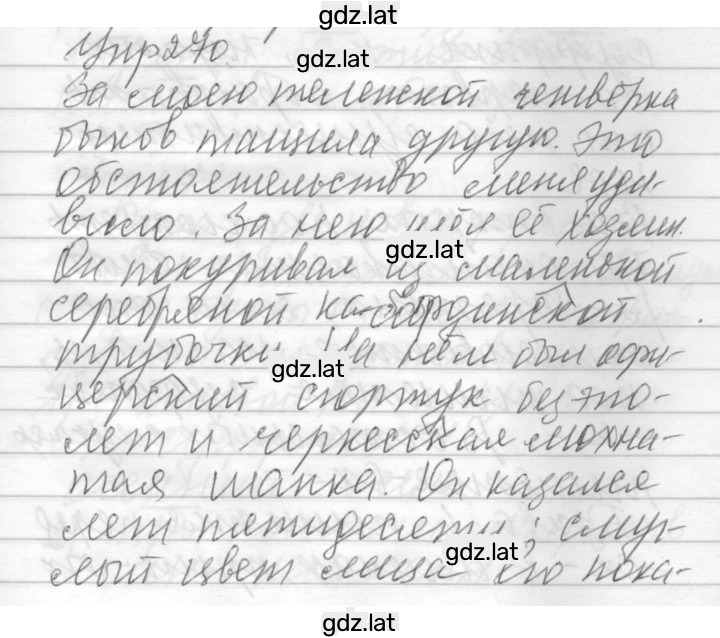 gdz.lat
Упр270.
gdz.lat
За моею тележкой четвёрка
быков тащила другую. Это
обстоятельство меня уди-
вило. За нею шёл её хозяин.
gdz.lat
Он покуривал из маленькой
серебряной ка-бардинской
трубочки. На нём был офи-
gdz.lat
церский сюртук без эпо-
лет и черкесская мохна-
тая шапка. Он казался
лет пятидесяти; смуг-
gdz.lat
лый цвет лица его пока-
gdz.lat